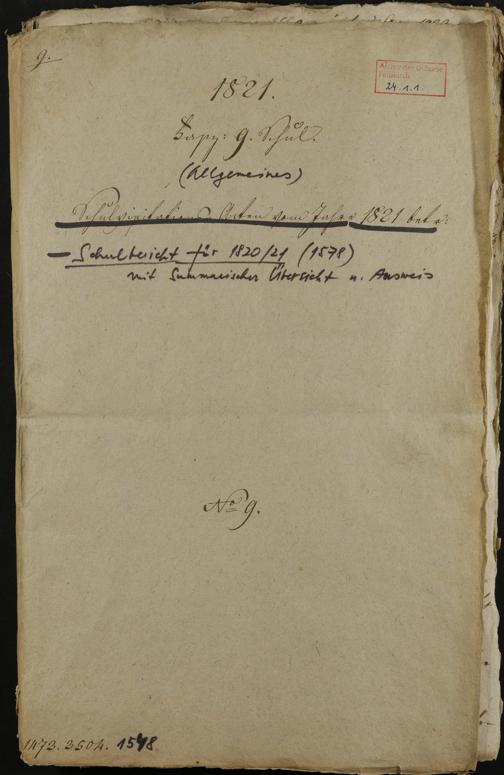 9.
1821.
9. Schul.
(Allgemeines)
Schulvisitations Acten vom Jahre 1821 betr:
– Schulbericht für 1820/21 (1578)
mit Summarischer Übersicht u. Ausweis
No 9.
1473. 3504. 1578
Archiv der Diözese
Feldkirch
24.1.1.